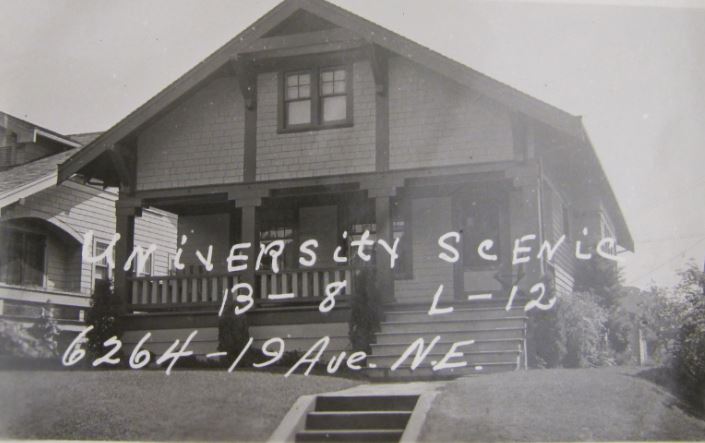 University Scenic
B-8 L-12
6264-19 Ave. N.E.